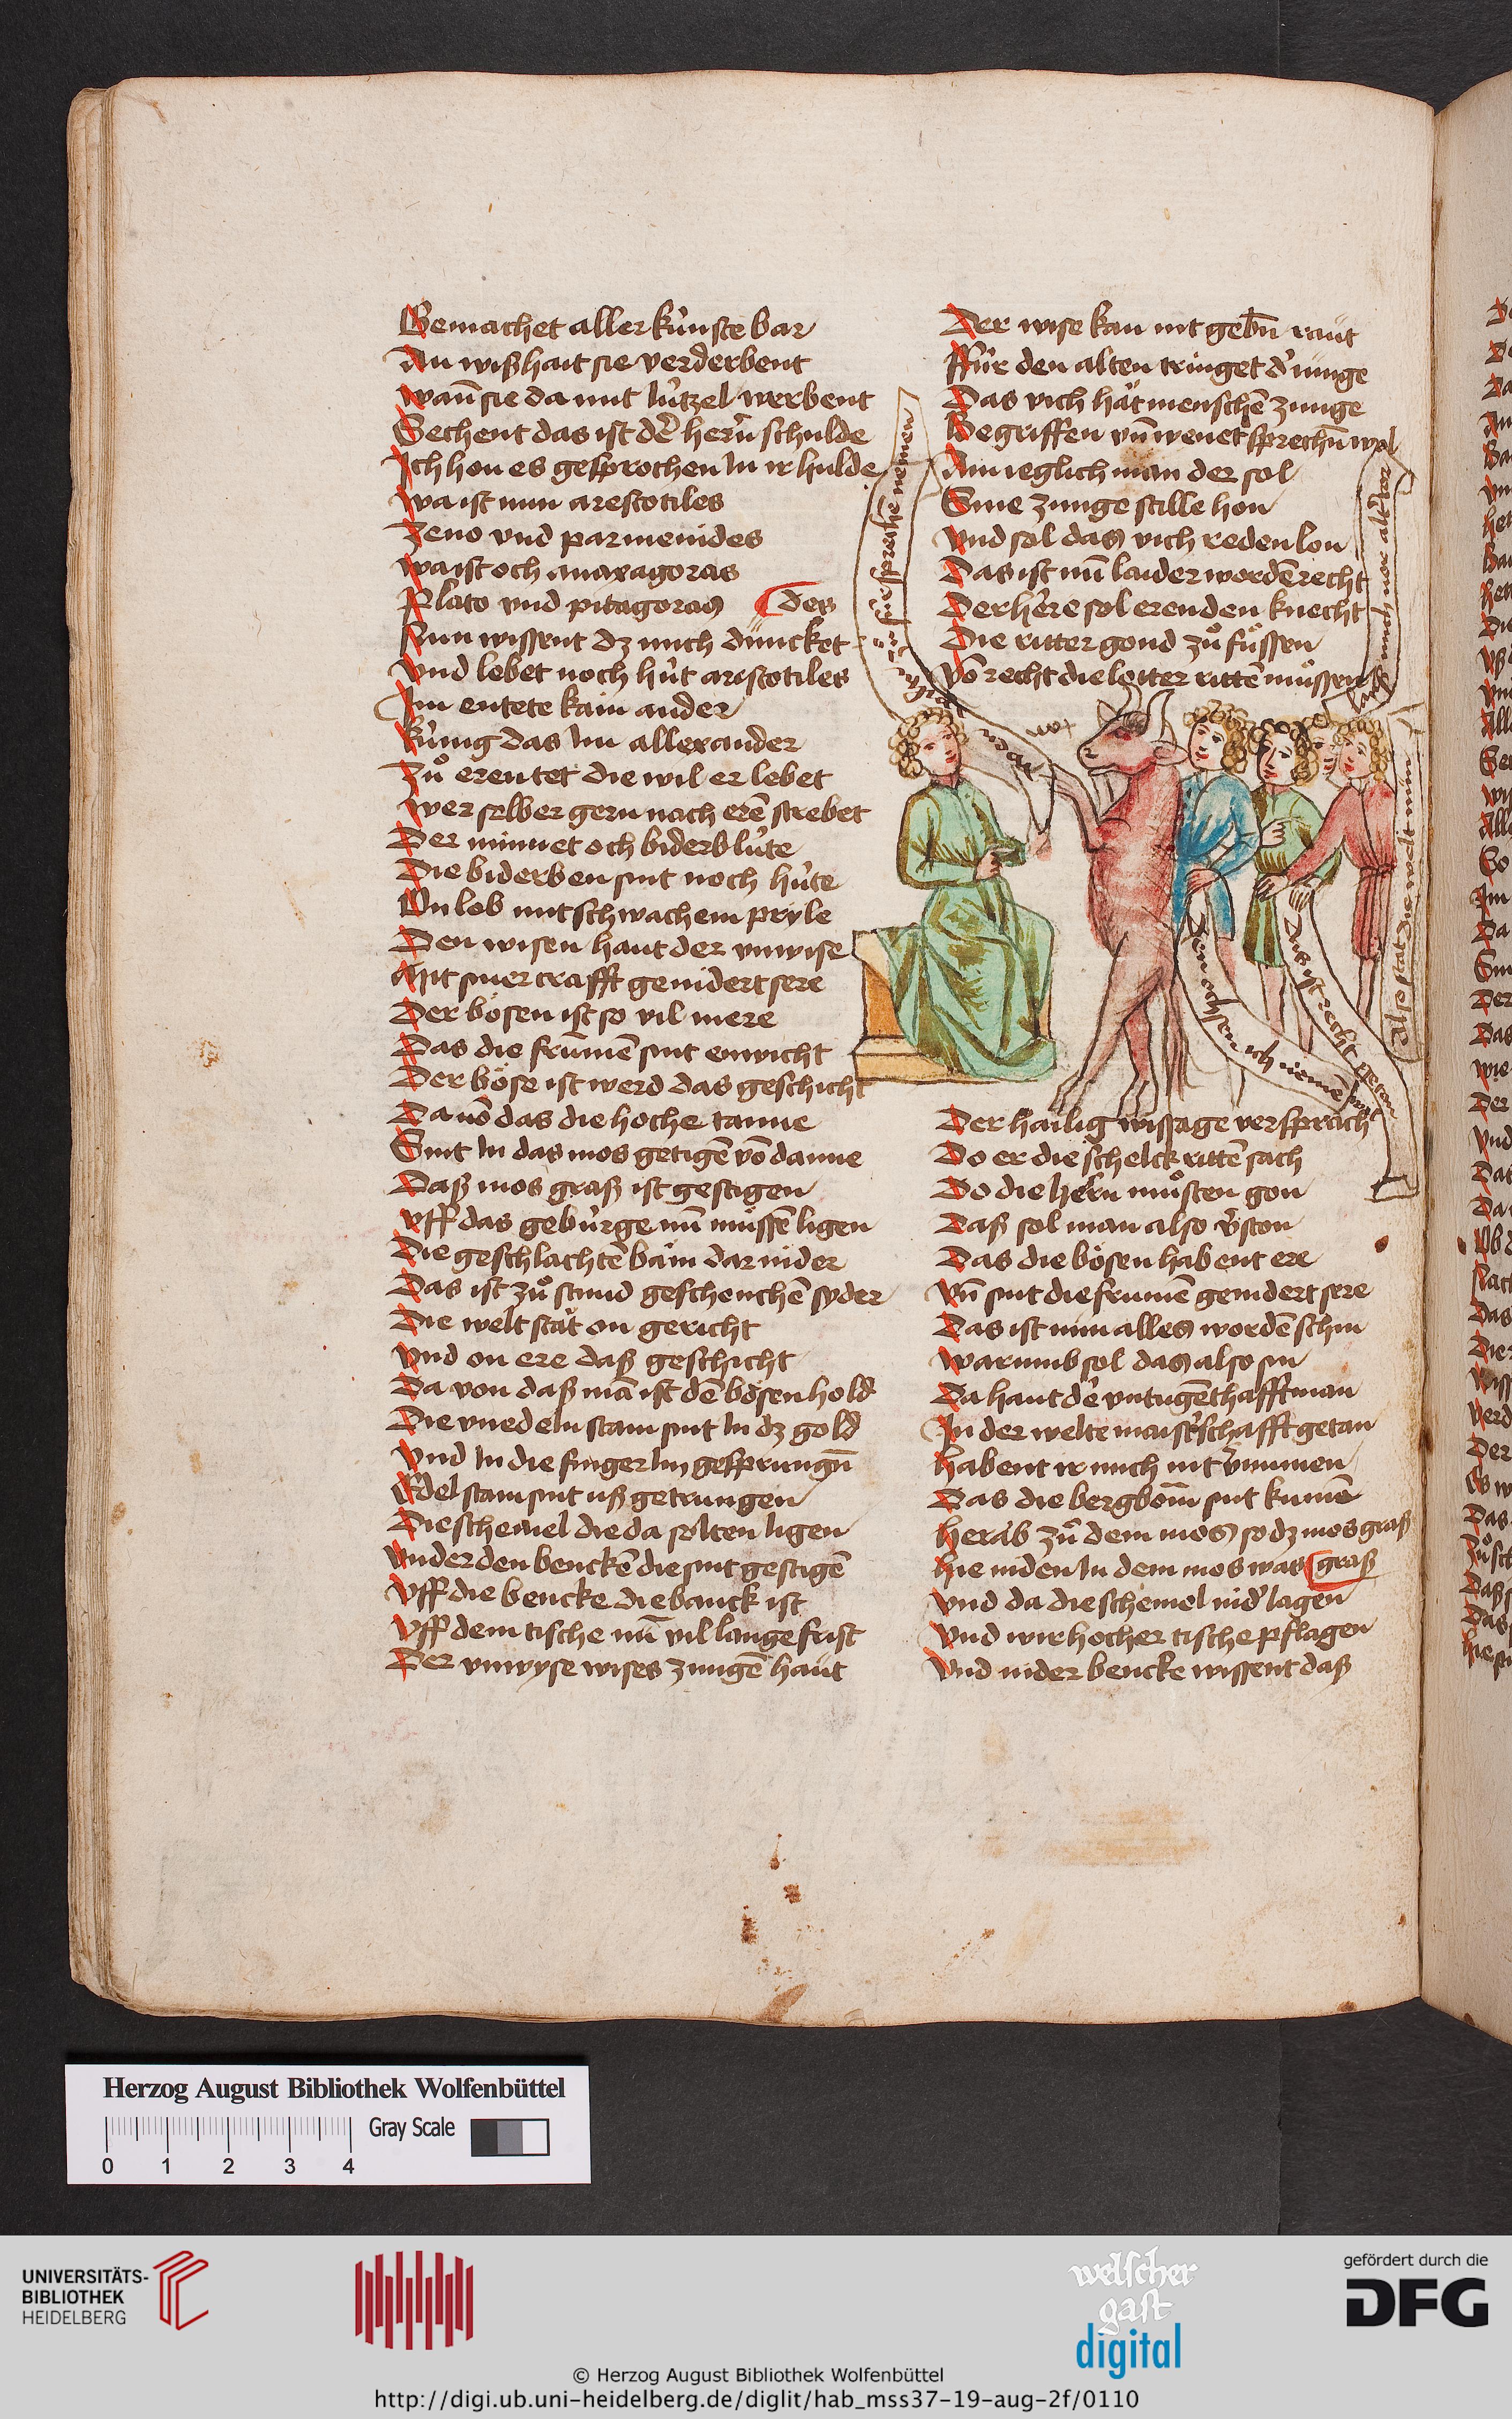 Gemachet aller ku̍nste bar
An wißhait sie verderbent
wan̄ sie da mit lu̍tzel werbent
Sechent das ist der̄ hern̄ schulde
Ich hon es gesprochen In ir hulde
wa ist nun arestotiles
Zeno vnd parmenides
wa ist och anaxagoras
Plato vnd pitagoras
des
Nun wissent dz mich duncket
vnd lebet noch hu̍t arestotiles
Im entete kain ander
Ku̍nig das Im allexander
Zuͦ eren tet die wil er lebet
wer selber gern nach ere̅ strebet
Der minnet och biderb lu̍te
Die biderben sint noch hu̍te
On lob mit schwachem pryse
Den wisen hant der vnwise
Mit siner crafft genidert sere
Der bösen ist so vil mere
Das die frume̅ sint enwicht
Der böse ist werd das geschicht
Da vo̅ das die hoche tanne
Sint In das mos getige̅ vo̅ danne
Daß mos graß ist gestigen
vff das gebu̍rge nu̅ müsse̅ ligen
Die geschlachte̅ bäm dar nider
Das ist zuͦ stund geschenche̅ syder
Die welt stät on gericht
vnd on ere daß geschicht
Da von daß ma̅ ist de̅ bösen hold
Die vnedeln stain sint In dz gold
vnd In die fingerlin gesprunge̅
Edel stain sint uß getrungen
Die schemel die da solten ligen
vnder den bencke̅ die sint gestige̅
vff die bencke die banck ist
vff dem tische nu̅ vil lange frist
Der vnwyse wises zunge̅ haut
Der wise kan nit gebn̄ raut
ffu̍r den alten tringet d' iunge
Das vich hät mensche̅ zunge
Begriffen vn̄ wenet spreche̅ wol
Ain ieglich man der sol
Sine zunge stille hon
vnd sol das vich reden lon
Das ist nu̅ laider worde̅ recht
Der here sol eren den knecht
Die ritter gond zuͦ füssen
Vo̅ recht die lotter ritte̅ müssen
wol sprechē nemen
vox
Den ochsen ich nieme̅ mit
Dis ist recht getan
Also stat die welt nun
Der hailig wissage versprach
Do er die schelck ritte̅ sach
Do die hern̄ muͦsten gon
Daß sol man also v'ston
Das die bösen habent ere
Vn̄ sint die frume̅ genidert sere
Das ist nun alles worde̅ schin
warumb sol das also sin
Da hant de' vntuge̅thafft man
In der welte maist'schafft getan
Habent ir mich nit v'nummen
Das die bergbom̅ sint kume̅
Herab zuͦ dem mos so dz mos graß
Hie niden In dem mos was
graß
Vnd da die schemel nid' lagen
Vnd wir hocher tische pflagen
Vnd nider bencke wissent daß
Herzog August Bibliothek Wolfenbüttel
Gray Scale
0 1 2 3 4
UNIVERSITÄTS-
BIBLIOTHEK
HEIDELBERG
welscher
gast
digital
gefördert durch die
DFG
© Herzog August Bibliothek Wolfenbüttel
http://digi.ub.uni-heidelberg.de/diglit/hab_mss37-19-aug-2f/0110